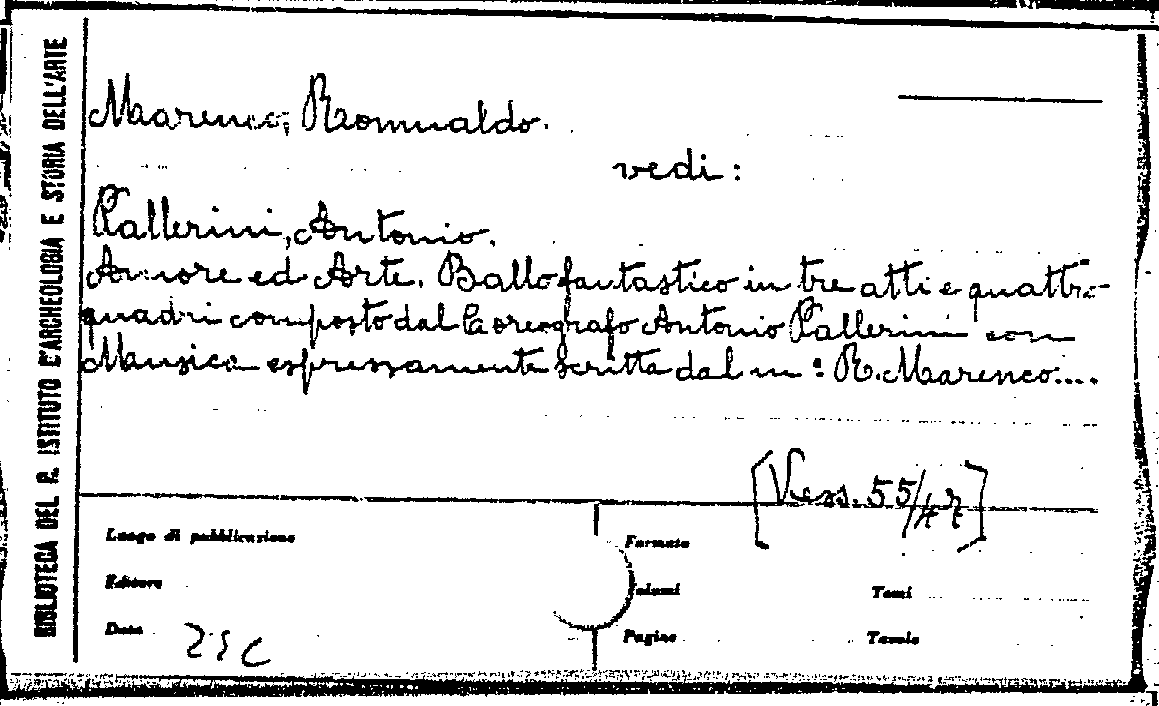 BIBLIOTECA DEL R. ISTITUTO D'ARCHEOLOGIA E STORIA DELL'ARTE
Marenco, Romualdo.
vedi:
Pallerini, Antonio.
Amore ed Arte. Ballo fantastico in tre atti e quattro
quadri composto dal Coreografo Antonio Pallerini con
Musica espressamente scritta dal m: R. Marenco....
[Vess. 55/47]
Luogo di pubblicazione
Formato
Editore
Volumi
Tomi
Data
Pagine
Tavole